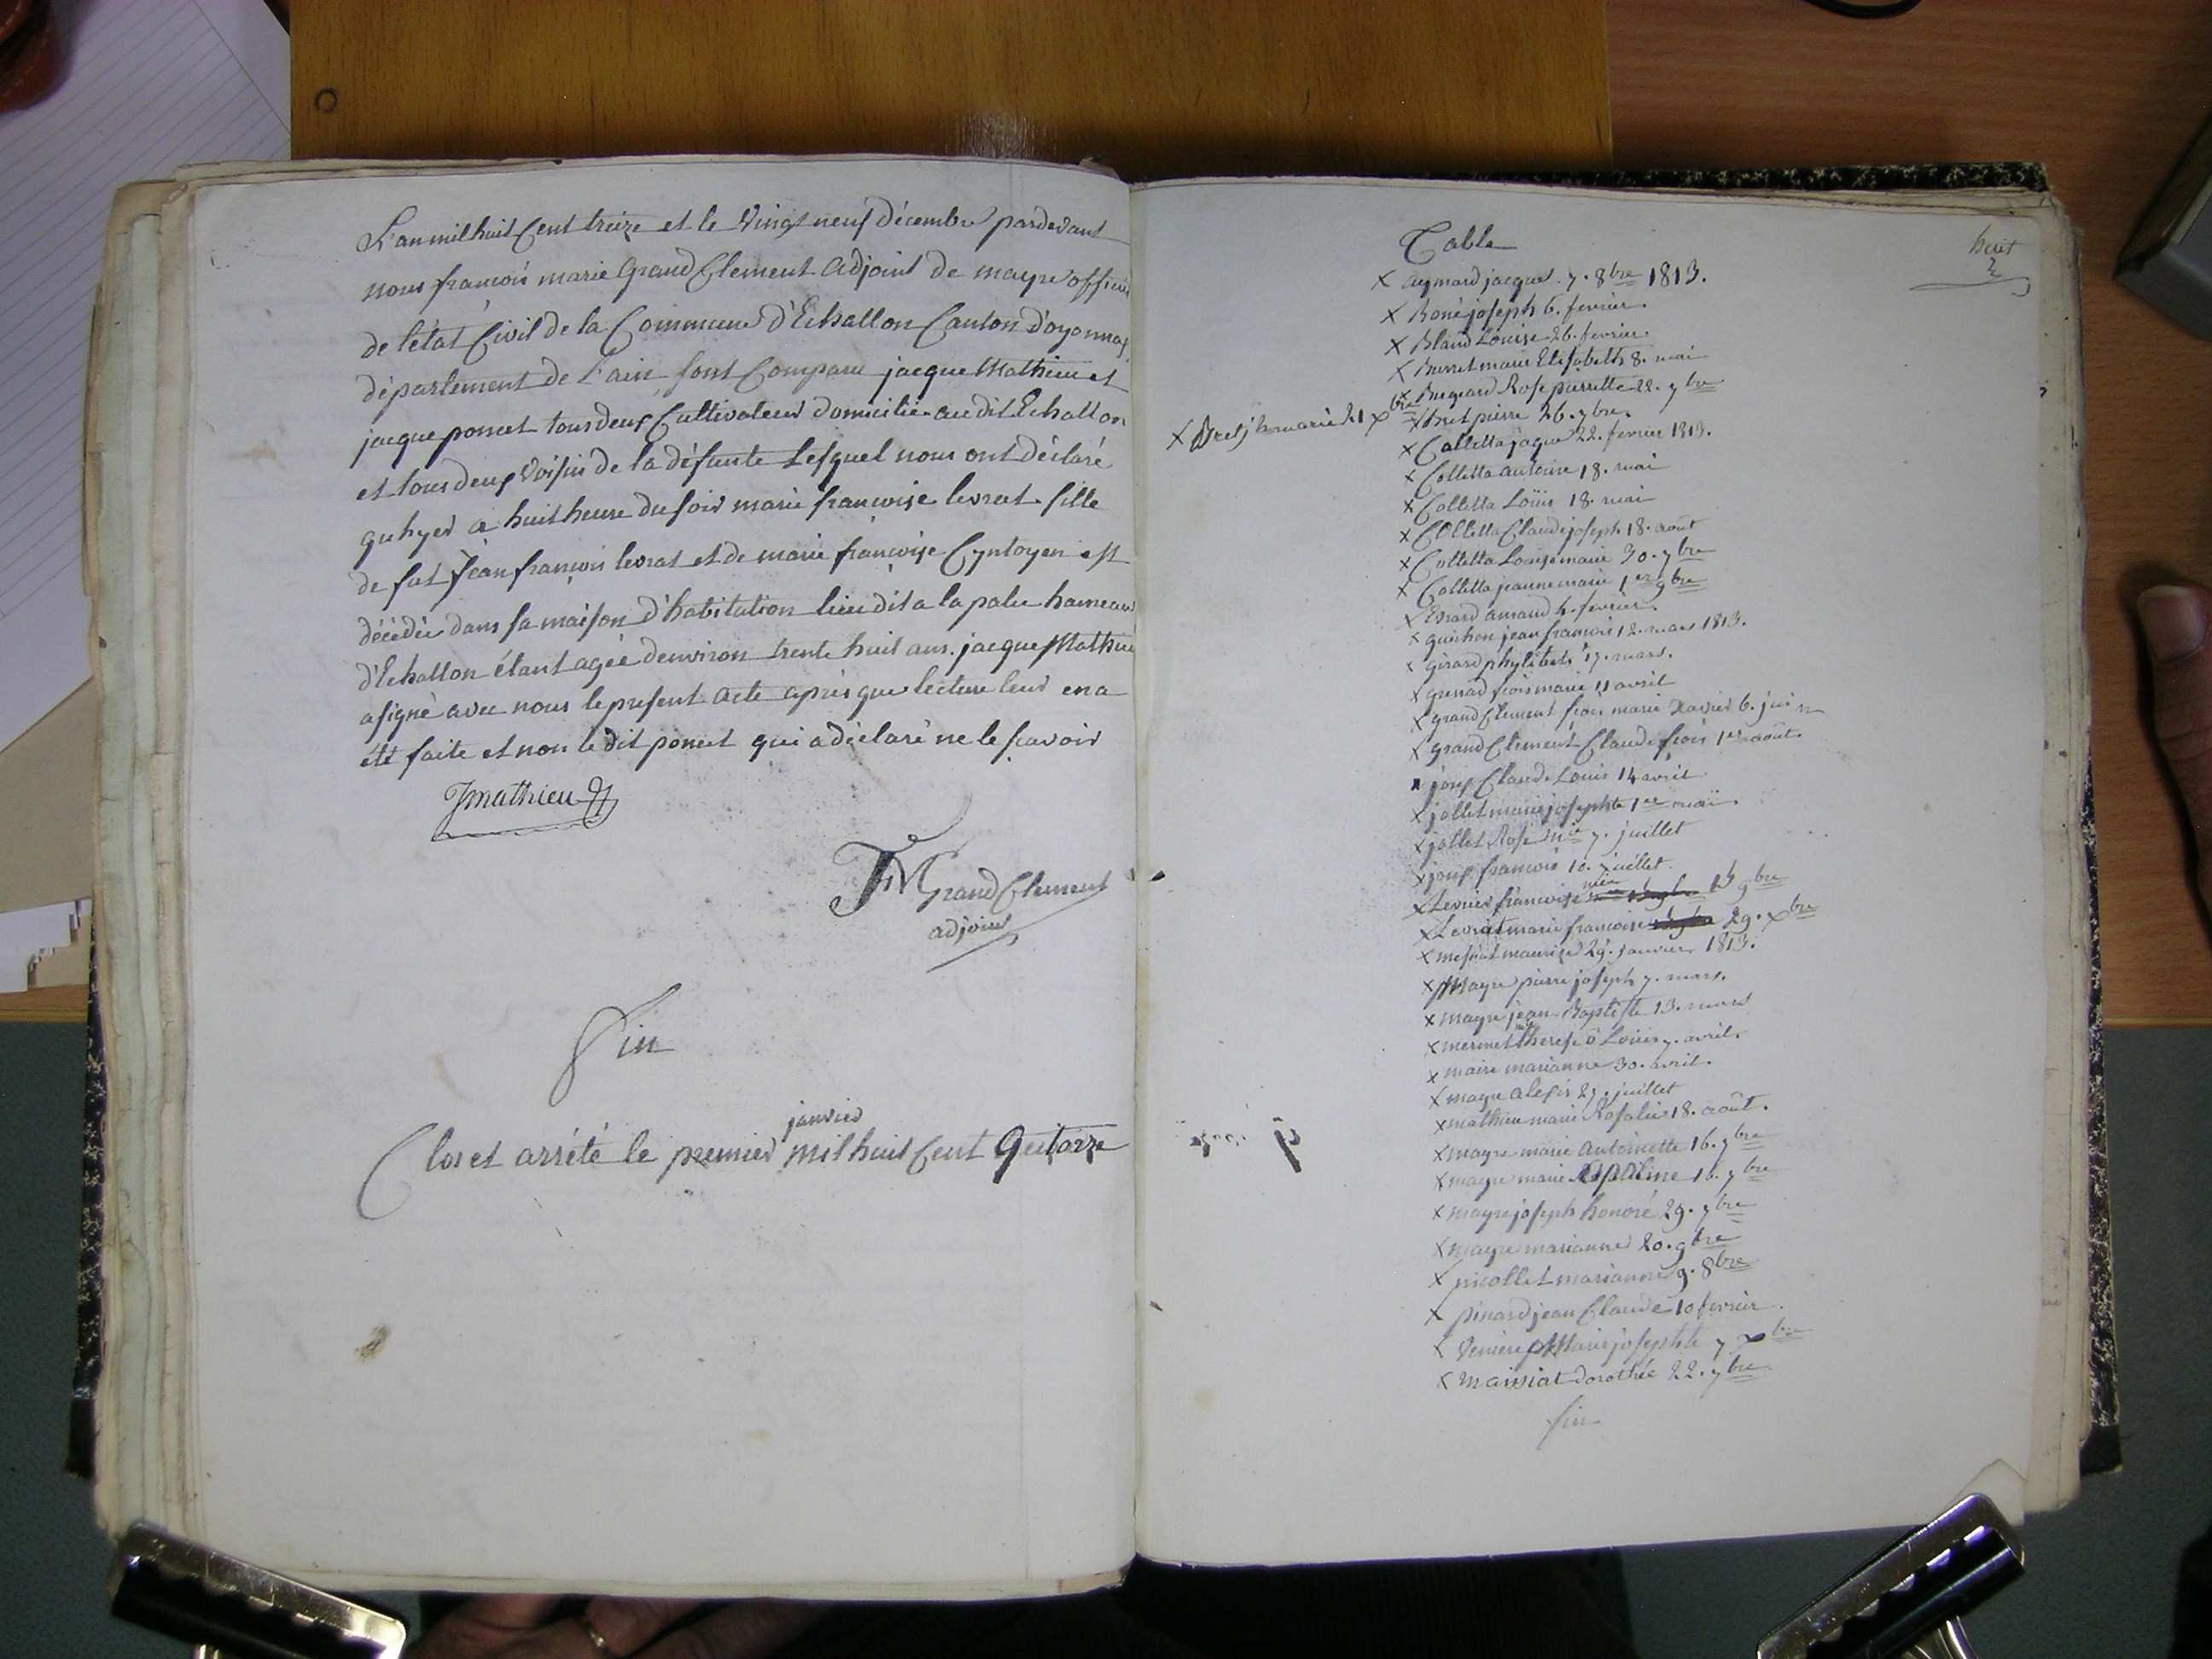 L'an mil huit Cent treize et le Vingt neuf décembre pardevant
nous francois marie Grand Clement adjoint de mayre officier
de l'état Civil de la Commune d'Echallon Canton d'oyonnax
département de L'ain sont Comparu jacque Mathieu et
jacque poncet tous deux Cultivateur domicilié au dit Echallon
et tous deux Voisin de la défunte Lesquel nous ont déclaré
qu hyer a huit heure du soir marie francoise levrat fille
de fut jean francois levrat et de marie francoise Cyntoyen est
décédée dans sa maison d'habitation lieu dit a la palu hameau
d'Echallon étant agée denviron trente huit ans. jacque Mathieu
a signé avec nous le present acte après que lecture leur en a
été faite et non le dit poncet qui a déclaré ne le scavoir
Jmathieu
FM Grand Clement
adjoint
fin
janvier
Clos et arrété le premier mil huit Cent Quatorze
huit
Table
x aymard jacque. 7. 8bre 1813.
x Boné joseph 6. fevrier.
x Bland Louise 26. fevrier.
x Burret marie Elisabeth 8. mai
x Bugeard Rose pierrette 22. 7bre
x Bret pierre 26. 7bre.
x Bret marie 21 xbre
x Colletta jaque 22. fevrier 1813.
x Colletta antoine 18. mai
x Colletta Loüis 18. mai
x Colletta Claude joseph 18. août
x Colletta Louise marie 30. 7bre
x Colletta jeanne marie 1er 9bre
x Evrard amand 4. fevrier.
x guichon jean francois 12. mars 1813.
x girard phylibert 17. mars.
x grenad frois marie 11 avril
x grand Clement frois marie Xavier 6. juin
x grand Clement Claude frois 1er août.
x joux Claude Louis 14 avril
x jollet marie josephte 1er mai.
x jollet Rose mie 7. juillet
x joux francois 10. juillet.
x Levrier francoise mie 15 9bre
x Levrat marie francoise 29. xbre
x mesniat maurize 29. janvier 1813.
x Mayre pierre joseph 7. mars.
x mayre jean Baptiste 13. mars
x mermet therese à Louis 7. avril.
x maire marianne 30. avril.
x mayre alexis 27. juillet
x mathieu marie Rosalie 18. août.
x mayre marie antoinette 16. 7bre
x mayre marie appoline 16. 7bre
x mayre joseph honoré 29. 7bre
x mayre marianne 20. 9bre
x nicollet marianne 9. 8bre
x pinard jean Claude 10 fevrier.
x Marie josephte 7 xbre
x maissiat dorothée 22. 7bre
fin